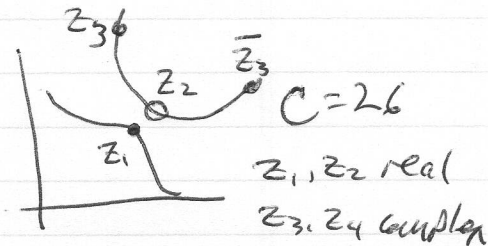 z₃
z₂
z̄₃
C = 26
z₁
z₁, z₂ real
z₃, z₄ complex